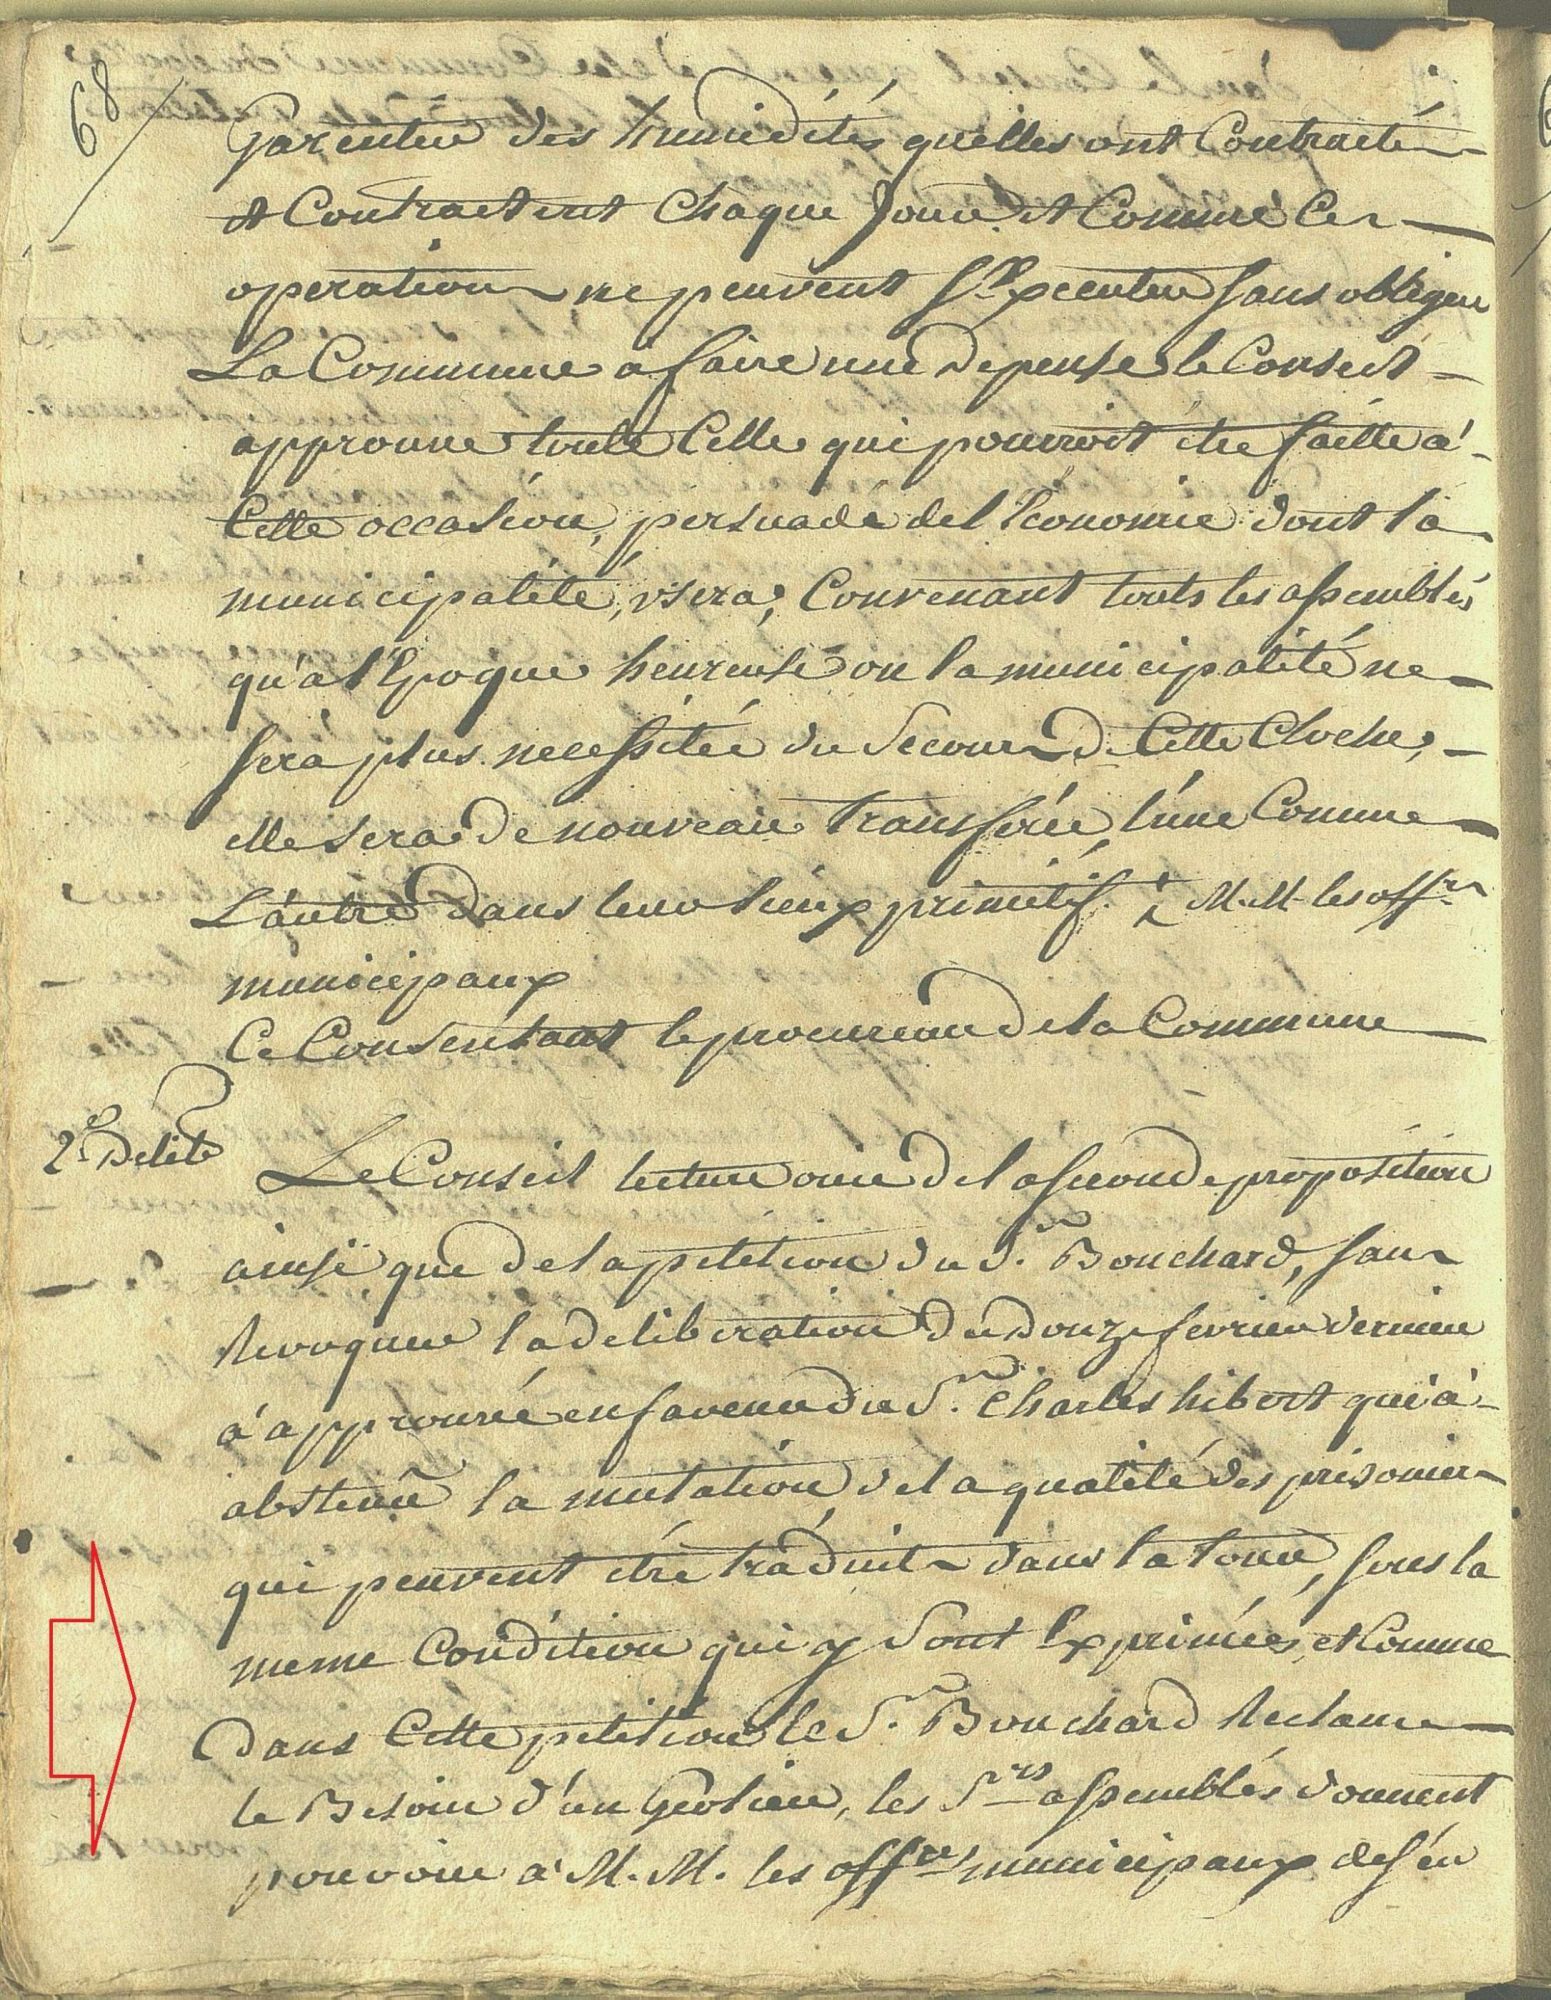 68
Garentir des humidités quelles ont Contractés
et Contractent Chaque Jour. et Comme Ces
operations ne peuvent S'Executer sans obliger
La Commune a faire une depense le Conseil
approuve toute Celle qui pourroit être faitte à
Cette occasion, persuadé de l'Economie dont la
municipalité, usera, Convenant touts les assemblés
qu'a l'Epoque heureuse ou la municipalité ne
sera plus necessitée du Secours de Cette Cloche,
elle sera de nouveau transferée, l'une Comme
L'autre dans leur lieux primitif. M.M. les offrs
municipaux
Ce Consentant le procureur de la Commune
2e Delibt
Le Conseil lecture ouie de la seconde proposition
ainsi que de la petition du Sr. Bouchard, sans
Revoquer la deliberation du Douze fevrier dernier
à approuvé en faveur du Sr. Charles hibert qui à
abstenu la mutation de la qualité des prisoniers
qui peuvent être traduits dans la tour, sous la
meme Condition qui y Sont Exprimées, et Comme
Dans Cette petition le Sr. Bouchard Reclame
le Besoin d'un Geolier, les Srs assemblés donnent
pouvoir a M.M. les offrs municipaux de s'én